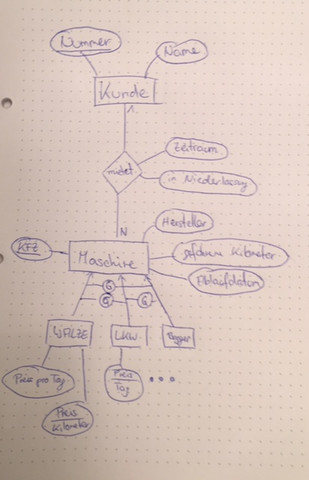 Nummer
Name
Kunde
1
mietet
Zeitraum
in Niederlassung
N
Hersteller
KFZ
Maschine
gefahrene Kilometer
Ablaufdaten
G
G
G
WALZE
LKW
Bagger
Preis pro Tag
Preis
Tag
...
Preis
Kilometer